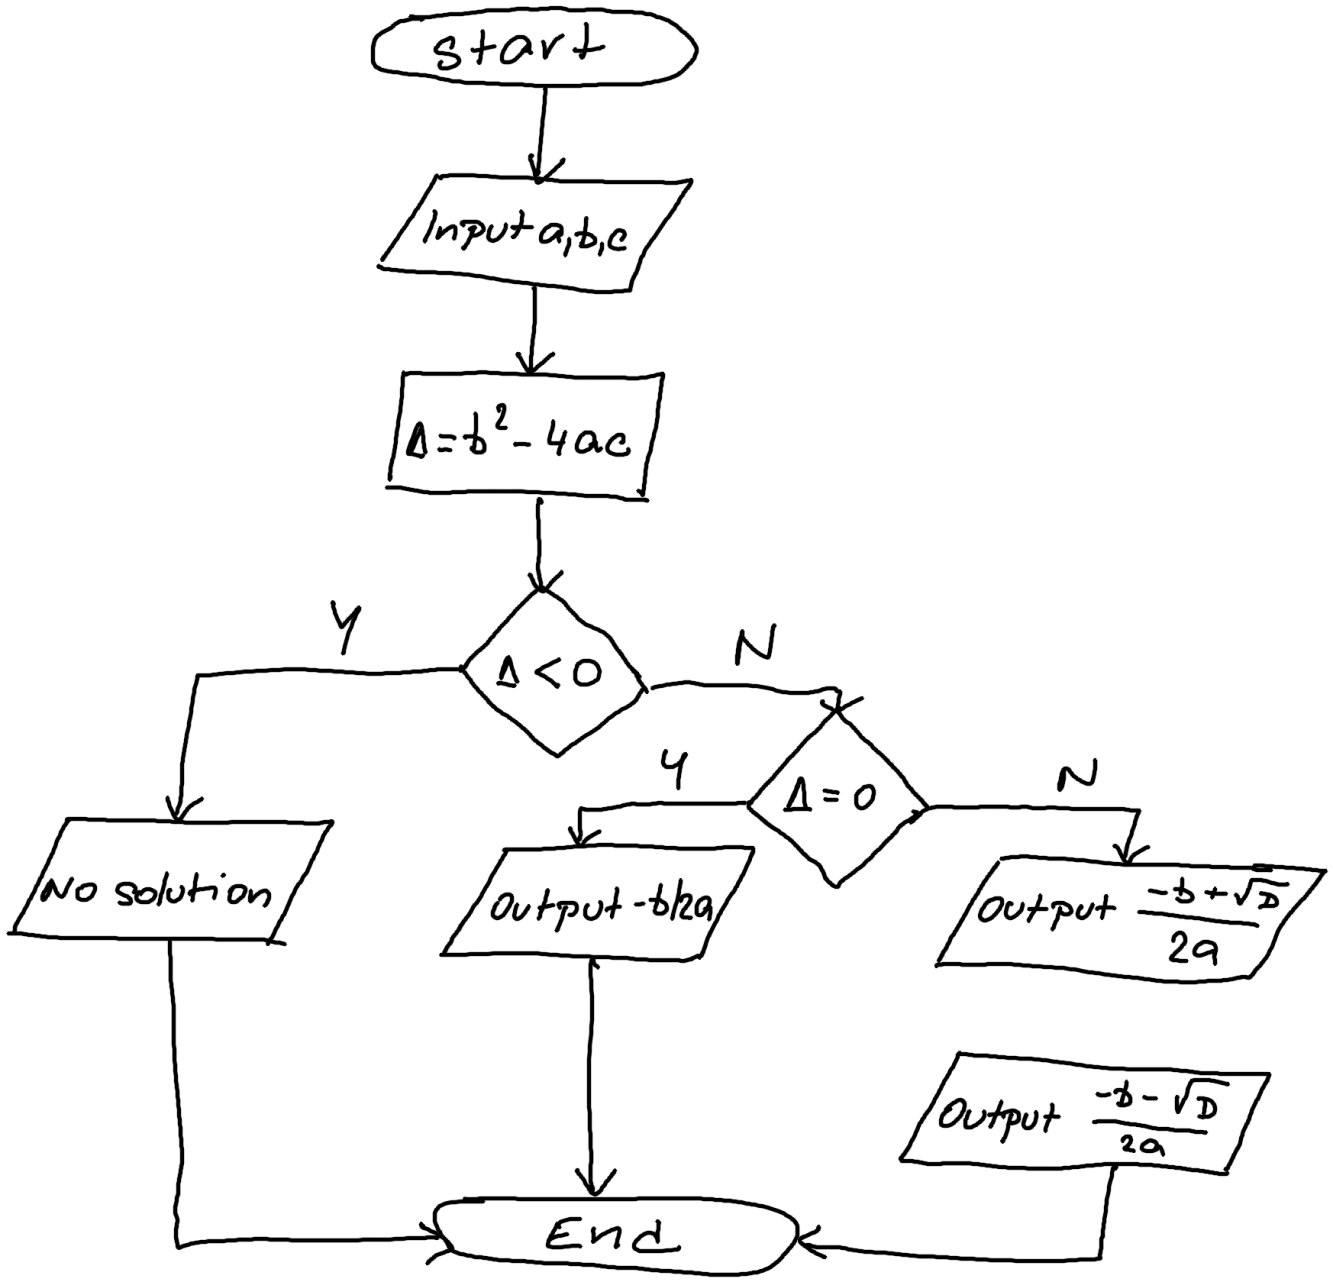 start
Input a,b,c
Δ=b²-4ac
Y
Δ<0
N
Y
Δ=0
N
No solution
Output -b/2a
Output (-b+√D)/2a
Output (-b-√D)/2a
End